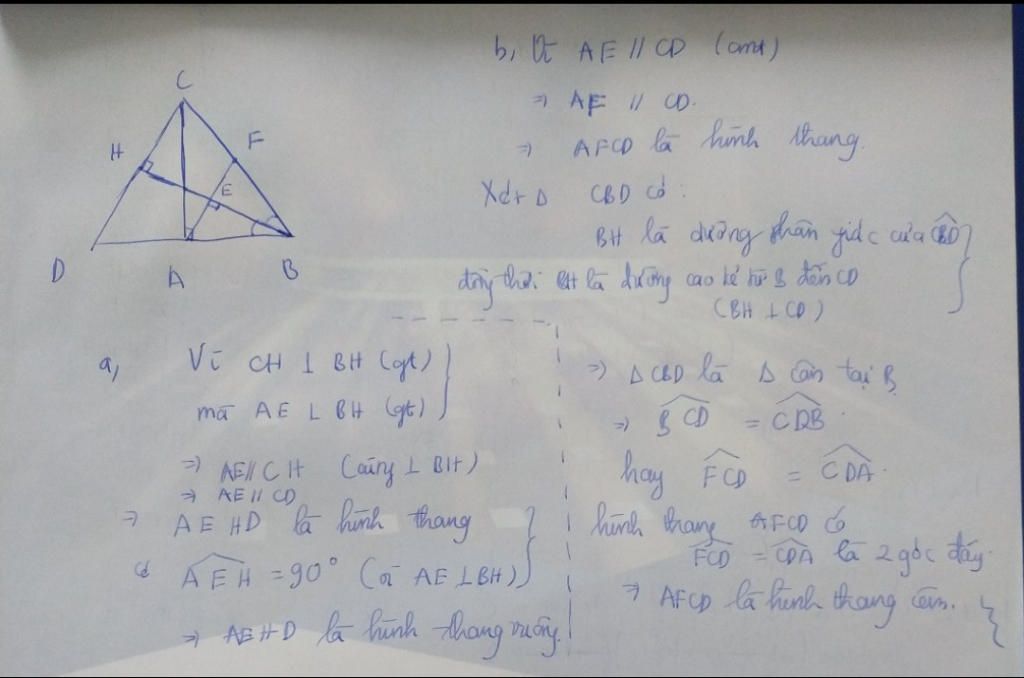 C
H
F
E
D
A
B
a, Vì CH ⊥ BH (gt)
mà AE ⊥ BH (gt)
⇒ AE // CH (cùng ⊥ BH)
⇒ AE // CD
⇒ AEHD là hình thang
có AEH = 90° (vì AE ⊥ BH)
⇒ AEHD là hình thang vuông.
b, Vì AE // CD (cmt)
⇒ AF // CD.
⇒ AFCD là hình thang.
Xét Δ CBD có:
BH là đường phân giác của CBD
đồng thời BH là đường cao kẻ từ B đến CD
(BH ⊥ CD)
⇒ Δ CBD là Δ cân tại B
⇒ BCD = CDB.
hay FCD = CDA.
hình thang AFCD có
FCD = CDA là 2 góc đáy.
⇒ AFCD là hình thang cân.